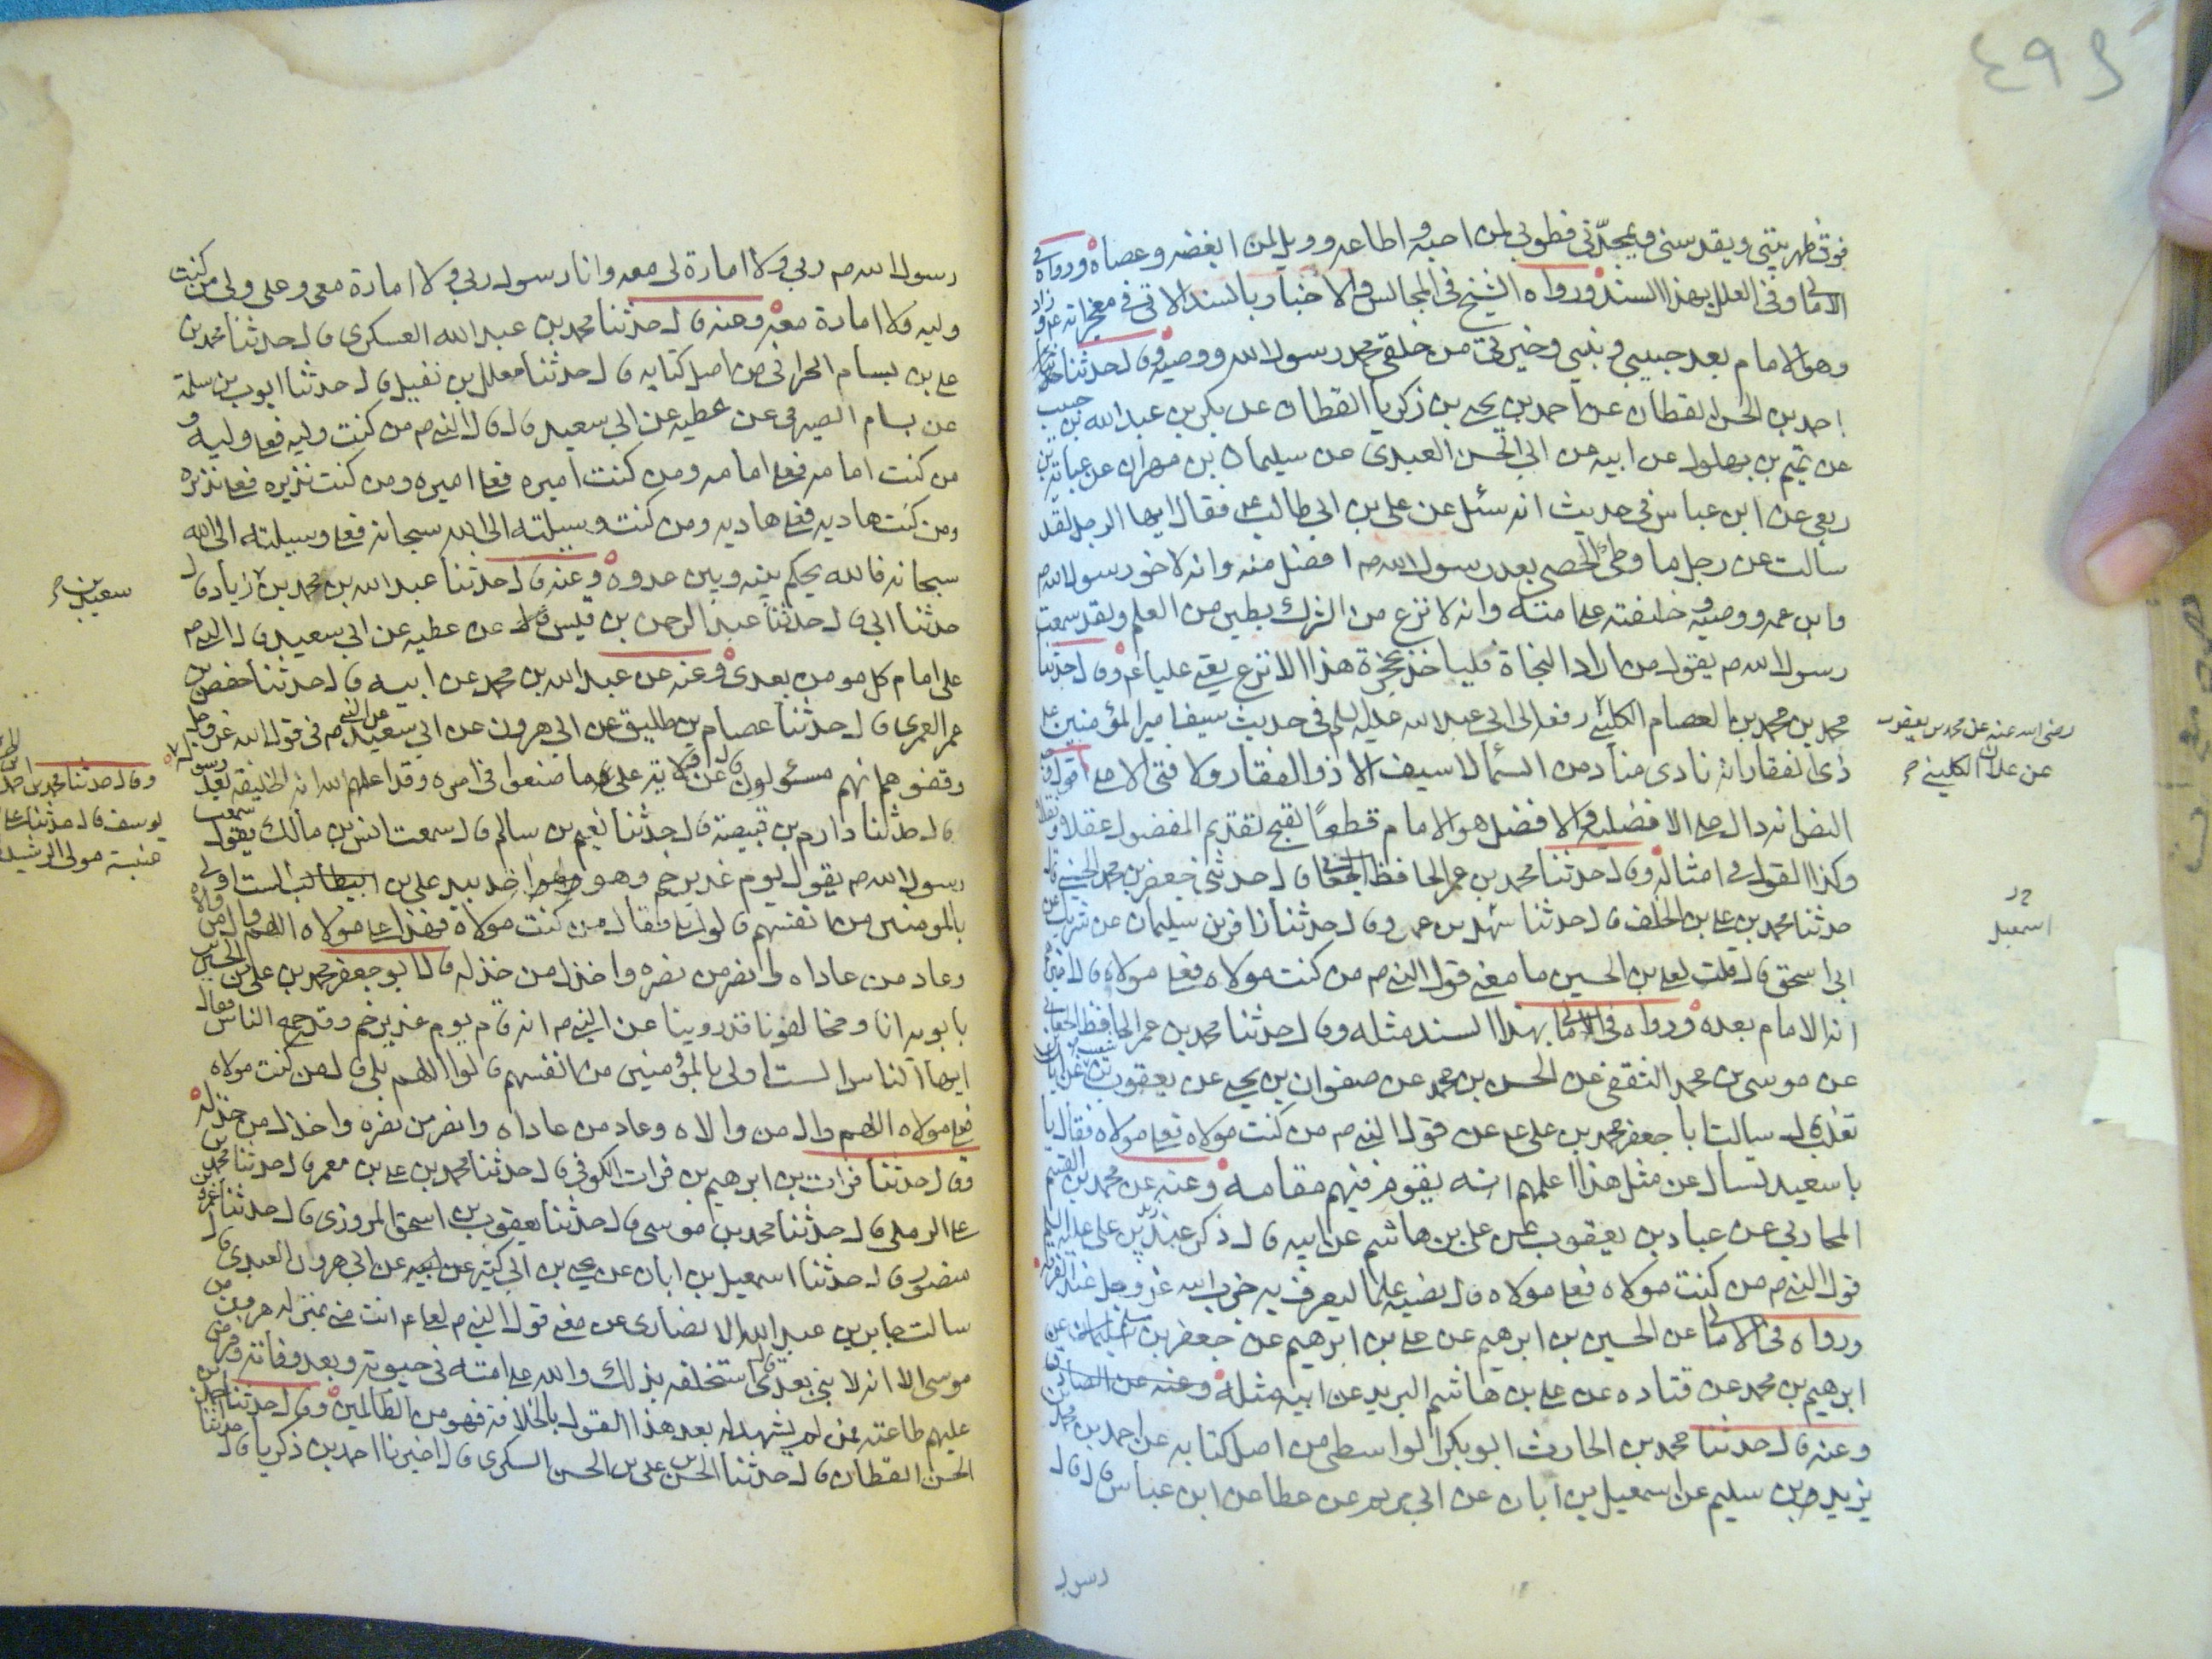 ٤٩٤
فوق ظهر بيتي ويقدسني ويمجدني فطوبى لمن احبه واطاعه وويل لمن ابغضه وعصاه ورواه في
الامالي وفي العلل بهذا السند ورواه الشيخ في المجالس والاخبار بالسند الاتي في معجزاته ع وزاد
وهو الامام بعد حبيبي ونبيي وخيرتي من خلقي محمد رسول الله ووصيه وق‍ال حدثنا
احمد بن الحسن القطان عن احمد بن يحيى بن زكريا القطان عن بكر بن عبد الله بن حبيب
عن تميم بن بهلول عن ابيه عن ابي الحسن العبدي عن سليمان بن مهران عن عباية بن
ربعي عن ابن عباس في حديث انه سئل عن علي بن ابي طالب ع فقال ايها الرجل لقد
سالت عن رجل ما وطئ الحصى بعد رسول الله ص افضل منه وانه لاخو رسول الله ص
وابن عمه ووصيه وخليفته على امته وانه لانزع من الشرك بطين من العلم ولقد سمعت
رسول الله ص يقول من اراد النجاة فلياخذ بحجزة هذا الانزع يعني عليا ع وقال حدثنا
محمد بن محمد بن العصام الكليني رفعه الى ابي عبد الله عليه السلم في حديث سيف امير المؤمنين ع
رضي الله عنه عن محمد بن يعقوب
عن علان الكليني ح
ذي الفقار انه نادى مناد من السماء لا سيف الا ذو الفقار ولا فتى الا علي اقول وجه
النص انه دال على الافضليه والافضل هو الامام قطعًا لقبح تقديم المفضول عقلا ونقلا
وكذا القول في امثاله وقال حدثنا محمد بن عمر الحافظ الجعابي قال حدثني جعفر بن محمد الحسني قال
حدثنا محمد بن علي بن الخلف قال حدثنا سهل بن عمر وقال حدثنا زافر بن سليمان عن شريك عن
اسمعيل
ابي اسحق قال قلت لعلي بن الحسين ما معنى قول النبي ص من كنت مولاه فعلي مولاه قال اخبرهم
انه الامام بعده ورواه في الامالي بهذا السند مثله وقال حدثنا محمد بن عمر الحافظ الجعابي
عن موسى بن محمد الثقفي عن الحسن بن محمد عن صفوان بن يحيى عن يعقوب بن شعيب عن ابان بن
تغلب قال سالت ابا جعفر محمد بن علي ع عن قول النبي ص من كنت مولاه فعلي مولاه فقال يا
باسعيد تسال عن مثل هذا اعلمهم انه يقوم فيهم مقامه وعنه عن محمد بن القسم
المحاربي عن عباد بن يعقوب عن علي بن هاشم عن ابيه قال ذكر عند زيد بن علي عليه السلم
قول النبي ص من كنت مولاه فعلي مولاه قال نصبه علما ليعرف به حزب الله عز وجل عند الفرقه
ورواه في الامالي عن الحسين بن ابرهيم عن علي بن ابرهيم عن جعفر بن سلمه عن
ابرهيم بن محمد عن قتاده عن علي بن هاشم البريد عن ابيه مثله وعنه عن الصادق
وعنه قال حدثنا محمد بن الحارث ابو بكر الواسطي من اصل كتابه عن احمد بن محمد بن
يزيد بن سليم عن اسمعيل بن ابان عن ابي مريم عن عطا عن ابن عباس قال قال
رسول
رسول الله ص ربي ولا امارة لي معه وانا رسول ربي ولا امارة معي وعلي ولي من كنت
وليه ولا امارة معه وعنه قال حدثنا محمد بن عبد الله العسكري قال حدثنا محمد بن
علي بن بسام الحراني من اصل كتابه قال حدثنا معلل بن نفيل قال حدثنا ايوب بن سلمة
عن بسام الصيرفي عن عطيه عن ابي سعيد قال قال النبي ص من كنت وليه فعلي وليه و
من كنت امامه فعلي امامه ومن كنت اميره فعلي اميره ومن كنت نذيره فعلي نذيره
ومن كنت هاديه فعلي هاديه ومن كنت وسيلته الى الله سبحانه فعلي وسيلته الى الله
سبحانه فالله يحكم بينه وبين عدوه وعنه قال حدثنا عبد الله بن محمد بن زياد قال
سعيد بن ح
حدثنا ابي قال حدثنا عبد الرحمن بن قيس عن عطيه عن ابي سعيد قال قال النبي ص
علي امام كل مومن بعدي وعنه عن عبد الله بن محمد عن ابيه قال حدثنا حفص بن
عمر العمري قال حدثنا عصام بن طليق عن ابي هرون عن ابي سعيد عن النبي ص في قول الله عز وجل
وقفوهم انهم مسئولون قال عن ولاية علي ما صنعوا في امره وقد اعلمهم الله انه الخليفه بعد رسوله
وقال حدثنا محمد بن احمد
يوسف قال حدثنا علي
عنبسة مولى الرشيد
قال حدثنا دارم بن قبيصة قال حدثنا نعيم بن سالم قال سمعت انس بن مالك يقول سمعت
رسول الله ص يقول يوم غدير خم وهو اخذ بيد علي بن ابيطالب الست اولى
بالمومنين من انفسهم قالوا بلى فقال من كنت مولاه فهذا علي مولاه اللهم وال من والاه
وعاد من عاداه وانصر من نصره واخذل من خذله قال ابو جعفر محمد بن علي بن الحسين بن
بابويه انا ومخالفونا قد روينا عن النبي ص انه قام يوم غدير خم وقد جمع الناس فقال
ايها الناس الست اولى بالمؤمنين من انفسهم قالوا اللهم بلى قال من كنت مولاه
فعلي مولاه اللهم وال من والاه وعاد من عاداه وانصر من نصره واخذل من خذله
وقال حدثنا فرات بن ابرهيم بن فرات الكوفي قال حدثنا محمد بن علي بن معمر قال حدثنا محمد بن
علي الرملي قال حدثنا محمد بن موسى قال حدثنا يعقوب بن اسحق المروزي قال حدثنا عمرو بن
منصور قال حدثنا اسمعيل بن ابان عن يحيى بن ابي كثير عن ابيه عن ابي هرون العبدي قال
سالت جابر بن عبد الله الانصاري عن معنى قول النبي ص لعلي ع انت مني بمنزله هرون من
موسى الا انه لا نبي بعدي قال استخلفه بذلك والله على امته في حيوته وبعد وفاته وفرض
عليهم طاعته فمن لم يشهد له بعد هذا القول بالخلافة فهو من الظالمين وقال حدثنا احمد بن
الحسن القطان قال حدثنا الحسن بن علي بن الحسن السكري قال اخبرنا احمد بن زكريا قال حدثنا